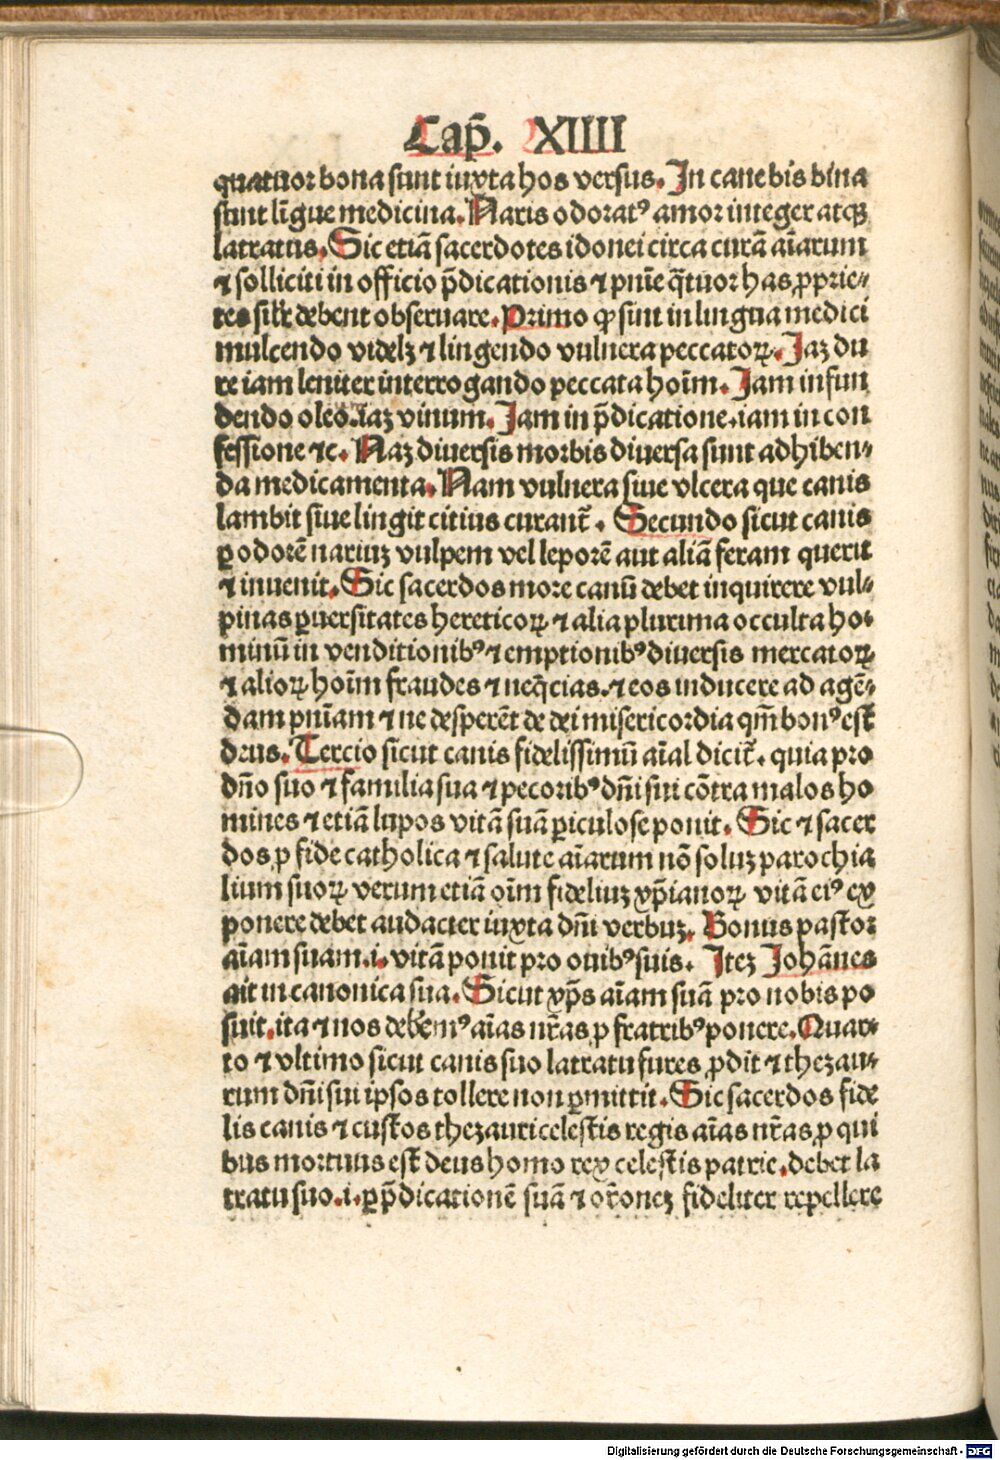 Cap̃. XIIII
quatuor bona sunt iuxta hos versus. In cane bis bina
sunt lĩgue medicina. Naris odoratꝰ amor integer atqꝫ
latratus. Sic etiã sacerdotes idonei circa curã aĩarum
⁊ solliciti in officio p̃dicationis ⁊ pnĩe q̃tuor has ꝓprie⸗
tes silr̃ debent obseruare. Primo ꝙ sint in lingua medici
mulcendo videlꝫ ⁊ lingendo vulnera peccatoꝝ. Iaꝫ du
re iam leniter interrogando peccata hoĩm. Iam infun
dendo oleo. iaꝫ vinum. Iam in p̃dicatione. iam in con
fessione ⁊c. Naꝫ diuersis morbis diuersa sunt adhiben⸗
da medicamenta. Nam vulnera siue vlcera que canis
lambit siue lingit citius curant᷑. Secundo sicut canis
ꝑ odorẽ nariuꝫ vulpem vel leporẽ aut aliã feram querit
⁊ inuenit. Sic sacerdos more canũ debet inquirere vul⸗
pinas ꝑuersitates hereticoꝝ ⁊ alia plurima occulta ho⸗
minũ in venditionibꝰ ⁊ emptionibꝰ diuersis mercatoꝝ
⁊ alioꝝ hoĩm fraudes ⁊ neq̃cias. ⁊ eos inducere ad agẽ⸗
dam pnĩam ⁊ ne desperẽt de dei misericordia qm̃ bonꝰ est
deus. Tercio sicut canis fidelissimũ aĩal dicit᷑. quia pro
dño suo ⁊ familia sua ⁊ pecoribꝰ dñi sui cõtra malos ho
mines ⁊ etiã lupos vitã suã ꝑiculose ponit. Sic ⁊ sacer
dos ꝓ fide catholica ⁊ salute aĩarum nõ soluꝫ parochia
lium suoꝝ verum etiã oĩm fideliuꝫ xp̃ianoꝝ vitã eiꝰ ex
ponere debet audacter iuxta dñi verbuꝫ. Bonus pastor
aĩam suam .i. vitã ponit pro ouibꝰ suis. Iteꝫ Johãnes
ait in canonica sua. Sicut xp̃s aĩam suã pro nobis po
suit. ita ⁊ nos debemꝰ aĩas nr̃as ꝓ fratribꝰ ponere. Quar⸗
to ⁊ vltimo sicut canis suo latratu fures ꝓdit ⁊ thezau⸗
rum dñi sui ipsos tollere non ꝑmittit. Sic sacerdos fide
lis canis ⁊ custos thezauri celestis regis aĩas nr̃as ꝓ qui
bus mortuus est deus homo rex celestis patrie. debet la
tratu suo .i. ꝑ p̃dicationẽ suã ⁊ or̃oneꝫ fideliter repellere
Digitalisierung gefördert durch die Deutsche Forschungsgemeinschaft - DFG